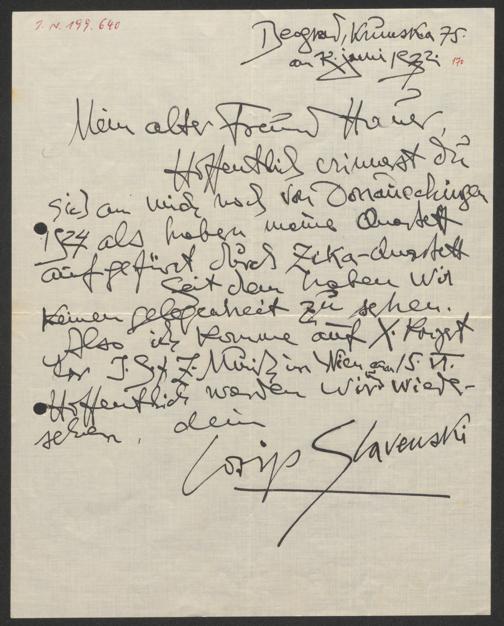 I. N. 199.640
Beograd, Krunska 75.
am juni 1932 170
Mein alter Freund Hauer,
Hoffentlich erinnerst du
sich an mich noch von Donaueschingen
1924 als haben meine Quartett
aufgefürt durch Zika-Quartett
Seit dem haben wir
keinen gelegenheit zu sehen.
Also ich komme auf X.
der I. G. f. N. Musik in Wien am 15. VI.
Hoffentlich werden wir wiede-
sehen, dein
Josip Slavenski